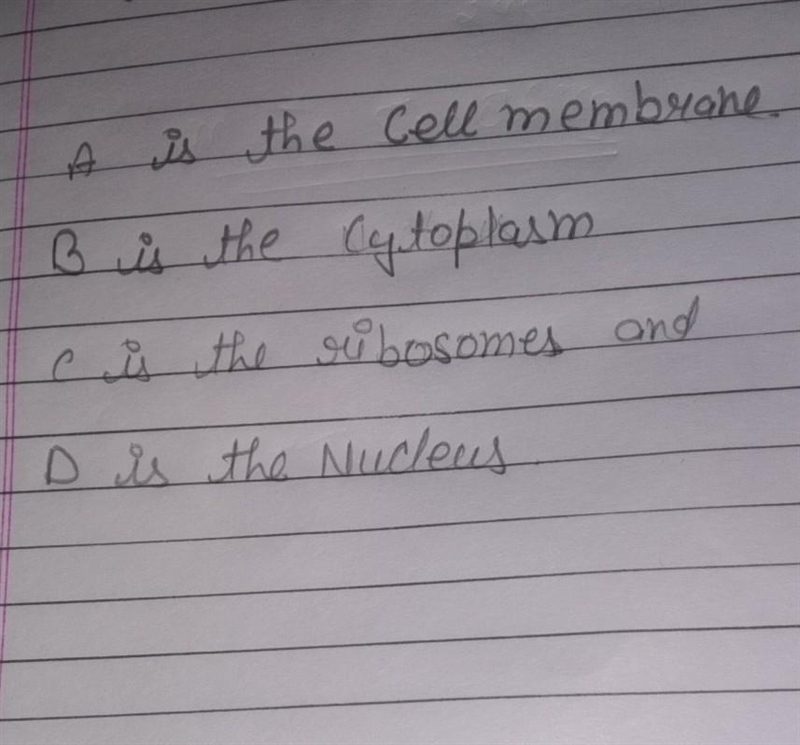 A is the Cell membrane.
B is the Cytoplasm
C is the ribosomes and
D is the Nucleus.